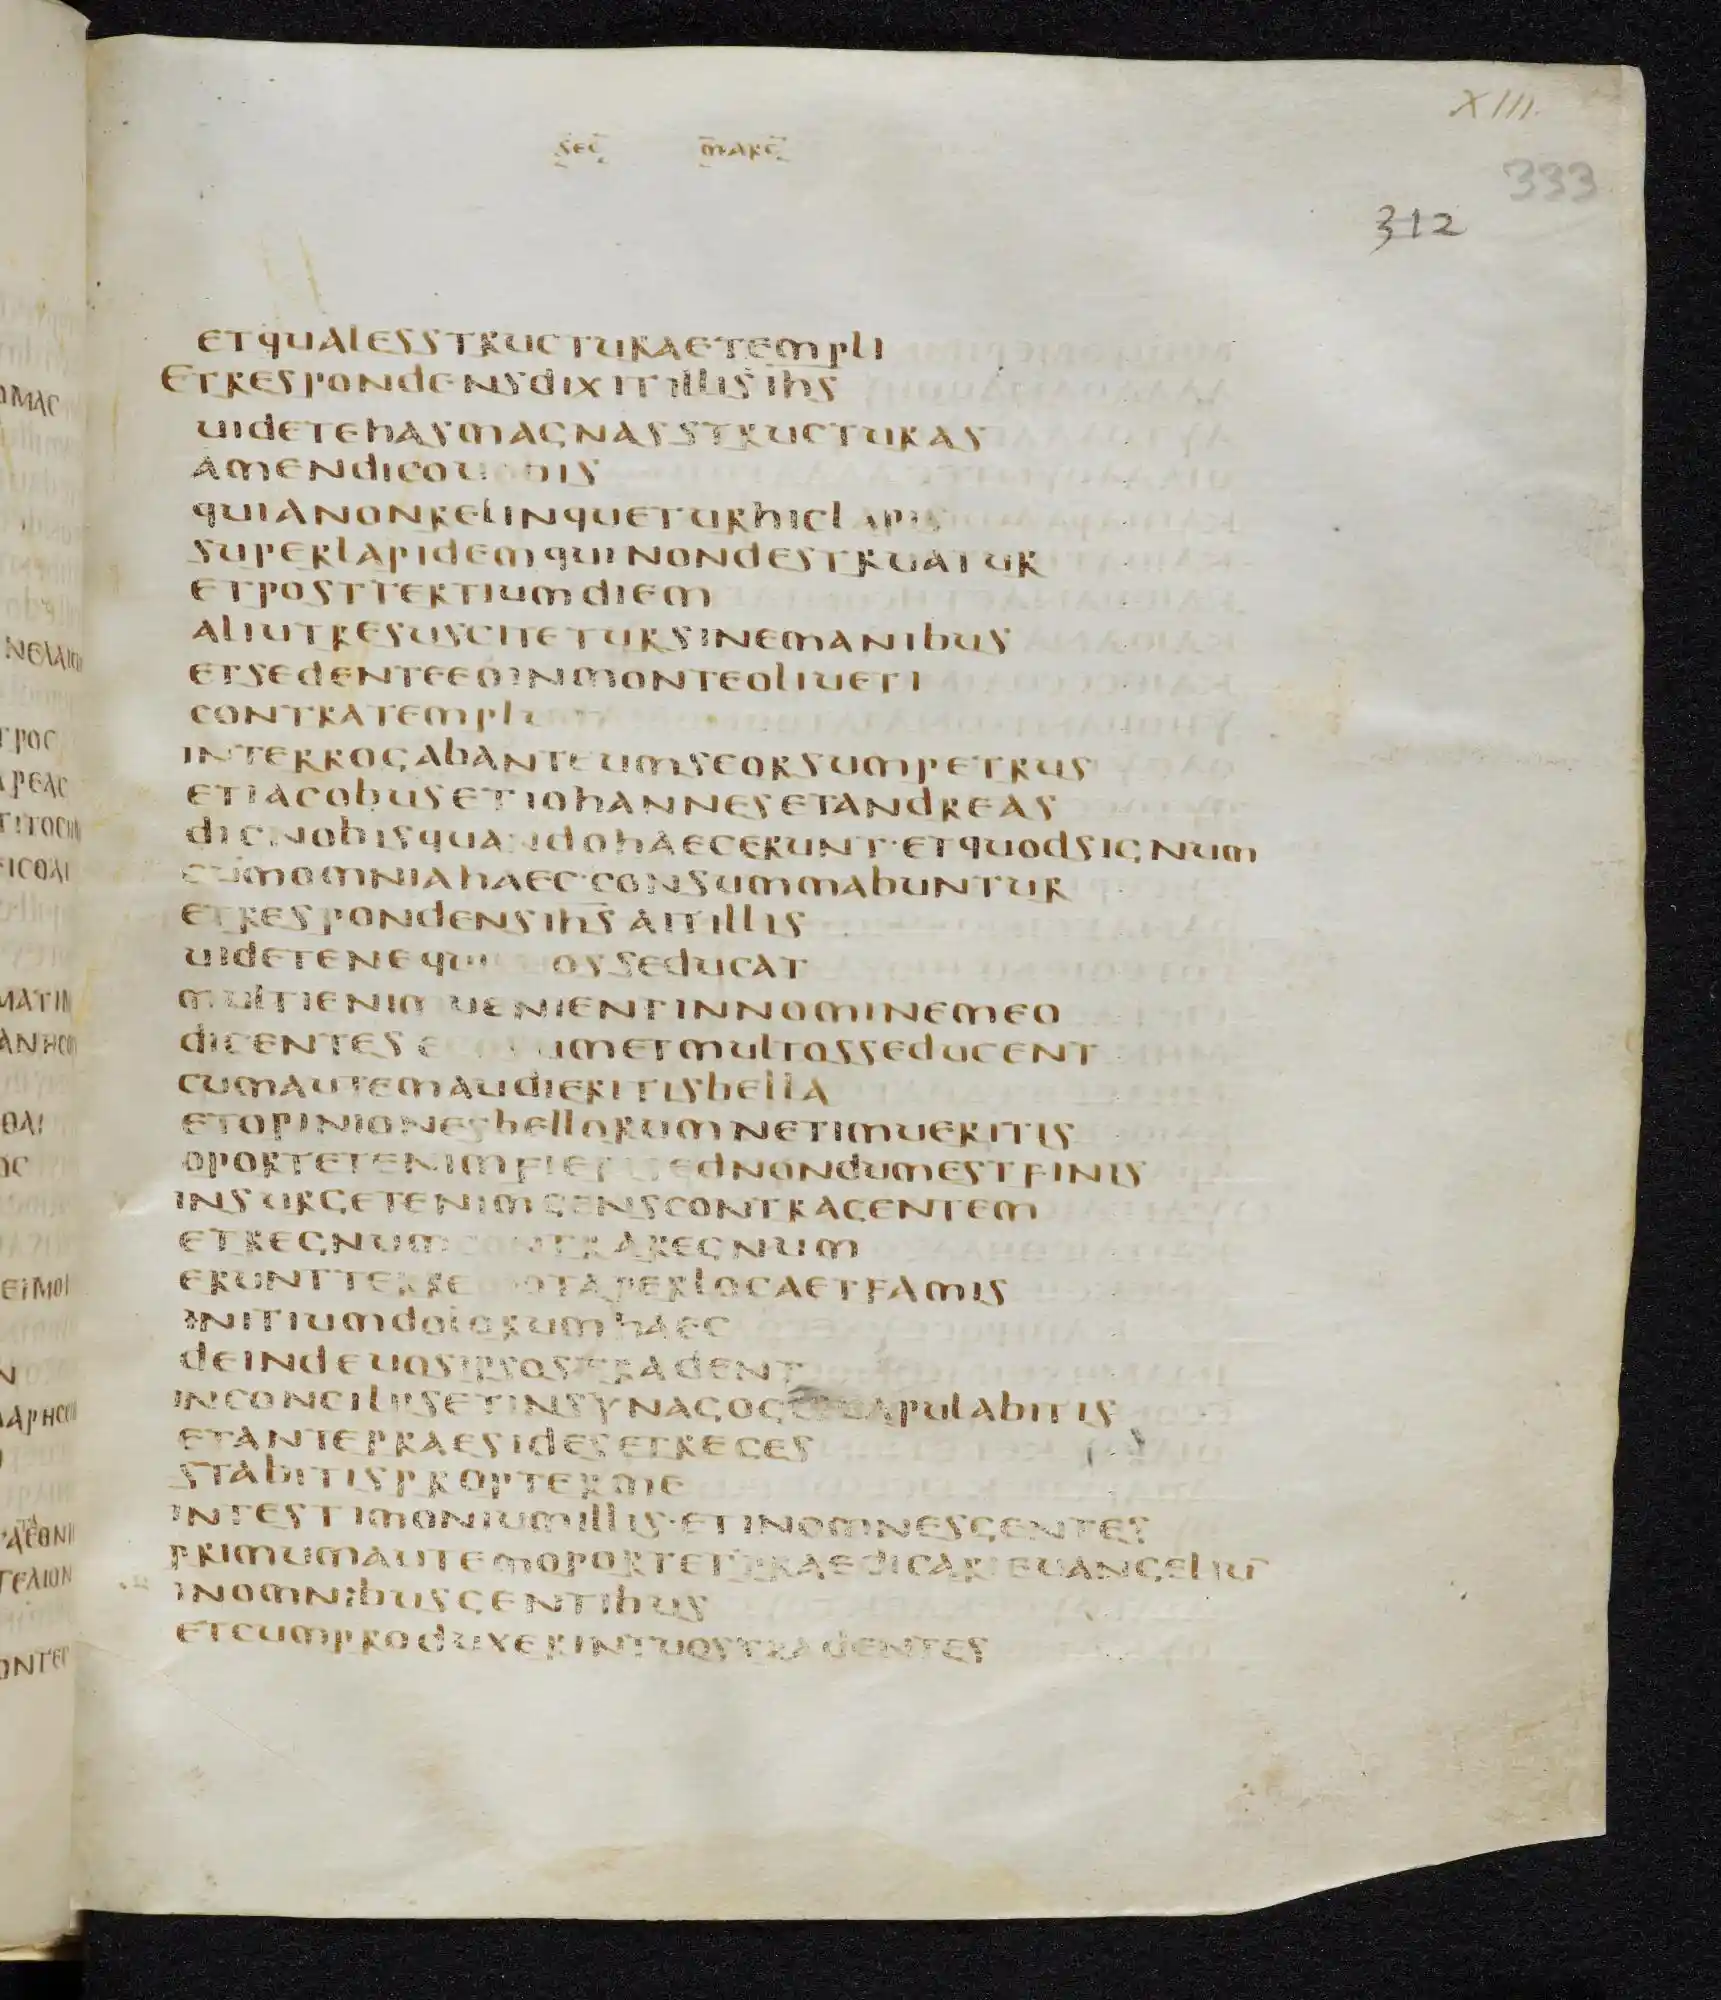 XIII.
sec̄ m̄arc̄
333
312
etqualesstructuraetempli
Etrespondensdixitillisih̄s
uidetehasmagnasstructuras
amendicouobis
quianonrelinqueturhiclapis
superlapidemquinondestruatur
etposttertiumdiem
aliutresuscitetursinemanibus
etsedenteeoinmonteoliueti
contratemplu
interrogabanteumseorsumpetrus
etiacobusetiohannesetandreas
dicnobisquandohaecerunt·etquodsignum
cumomniahaec·consummabuntur
etrespondensih̄saitillis
uidetenequi osseducat
multienim uenientinnominemeo
dicentese umetmultosseducent
cumautemaudieritisbella
etopinionesbellorumnetimueritis
oportetenimfieri sednondumestfinis
insurgetenimgenscontragentem
etregnumcontraregnum
eruntterre motaperlocaetfamis
initiumdolorumhaec
deindeuosipsostradent
inconciliisetinsynagog uapulabitis
etantepraesidesetreges
stabitispropterme
intestimoniumillis·etinomnesgentes
primumautemoportetpraedicarieuangeliū
inomnibusgentibus
etcumproduxerintuostradentes